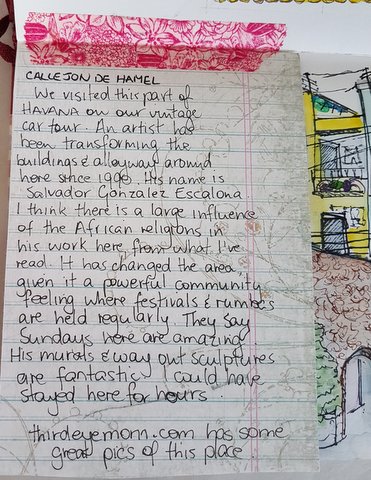 CALLEJON DE HAMEL
We visited this part of
HAVANA on our vintage
car tour. An artist has
been transforming the
buildings & alleyway around
here since 1990. His name is
Salvador Gonzalez Escalona.
I think there is a large influence
of the African religions in
his work here, from what I've
read. It has changed the area,
given it a powerful community
feeling where festivals & rumbas
are held regularly. They say
Sundays here are amazing
His murals & way out sculptures
are fantastic I could have
stayed here for hours.
thirdeyemom.com has some
great pics of this place